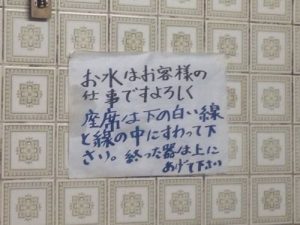 お水はお客様の
仕事ですよろしく
座席は下の白い線
と線の中にすわって下
さい。終った器は上に
あげて下さい